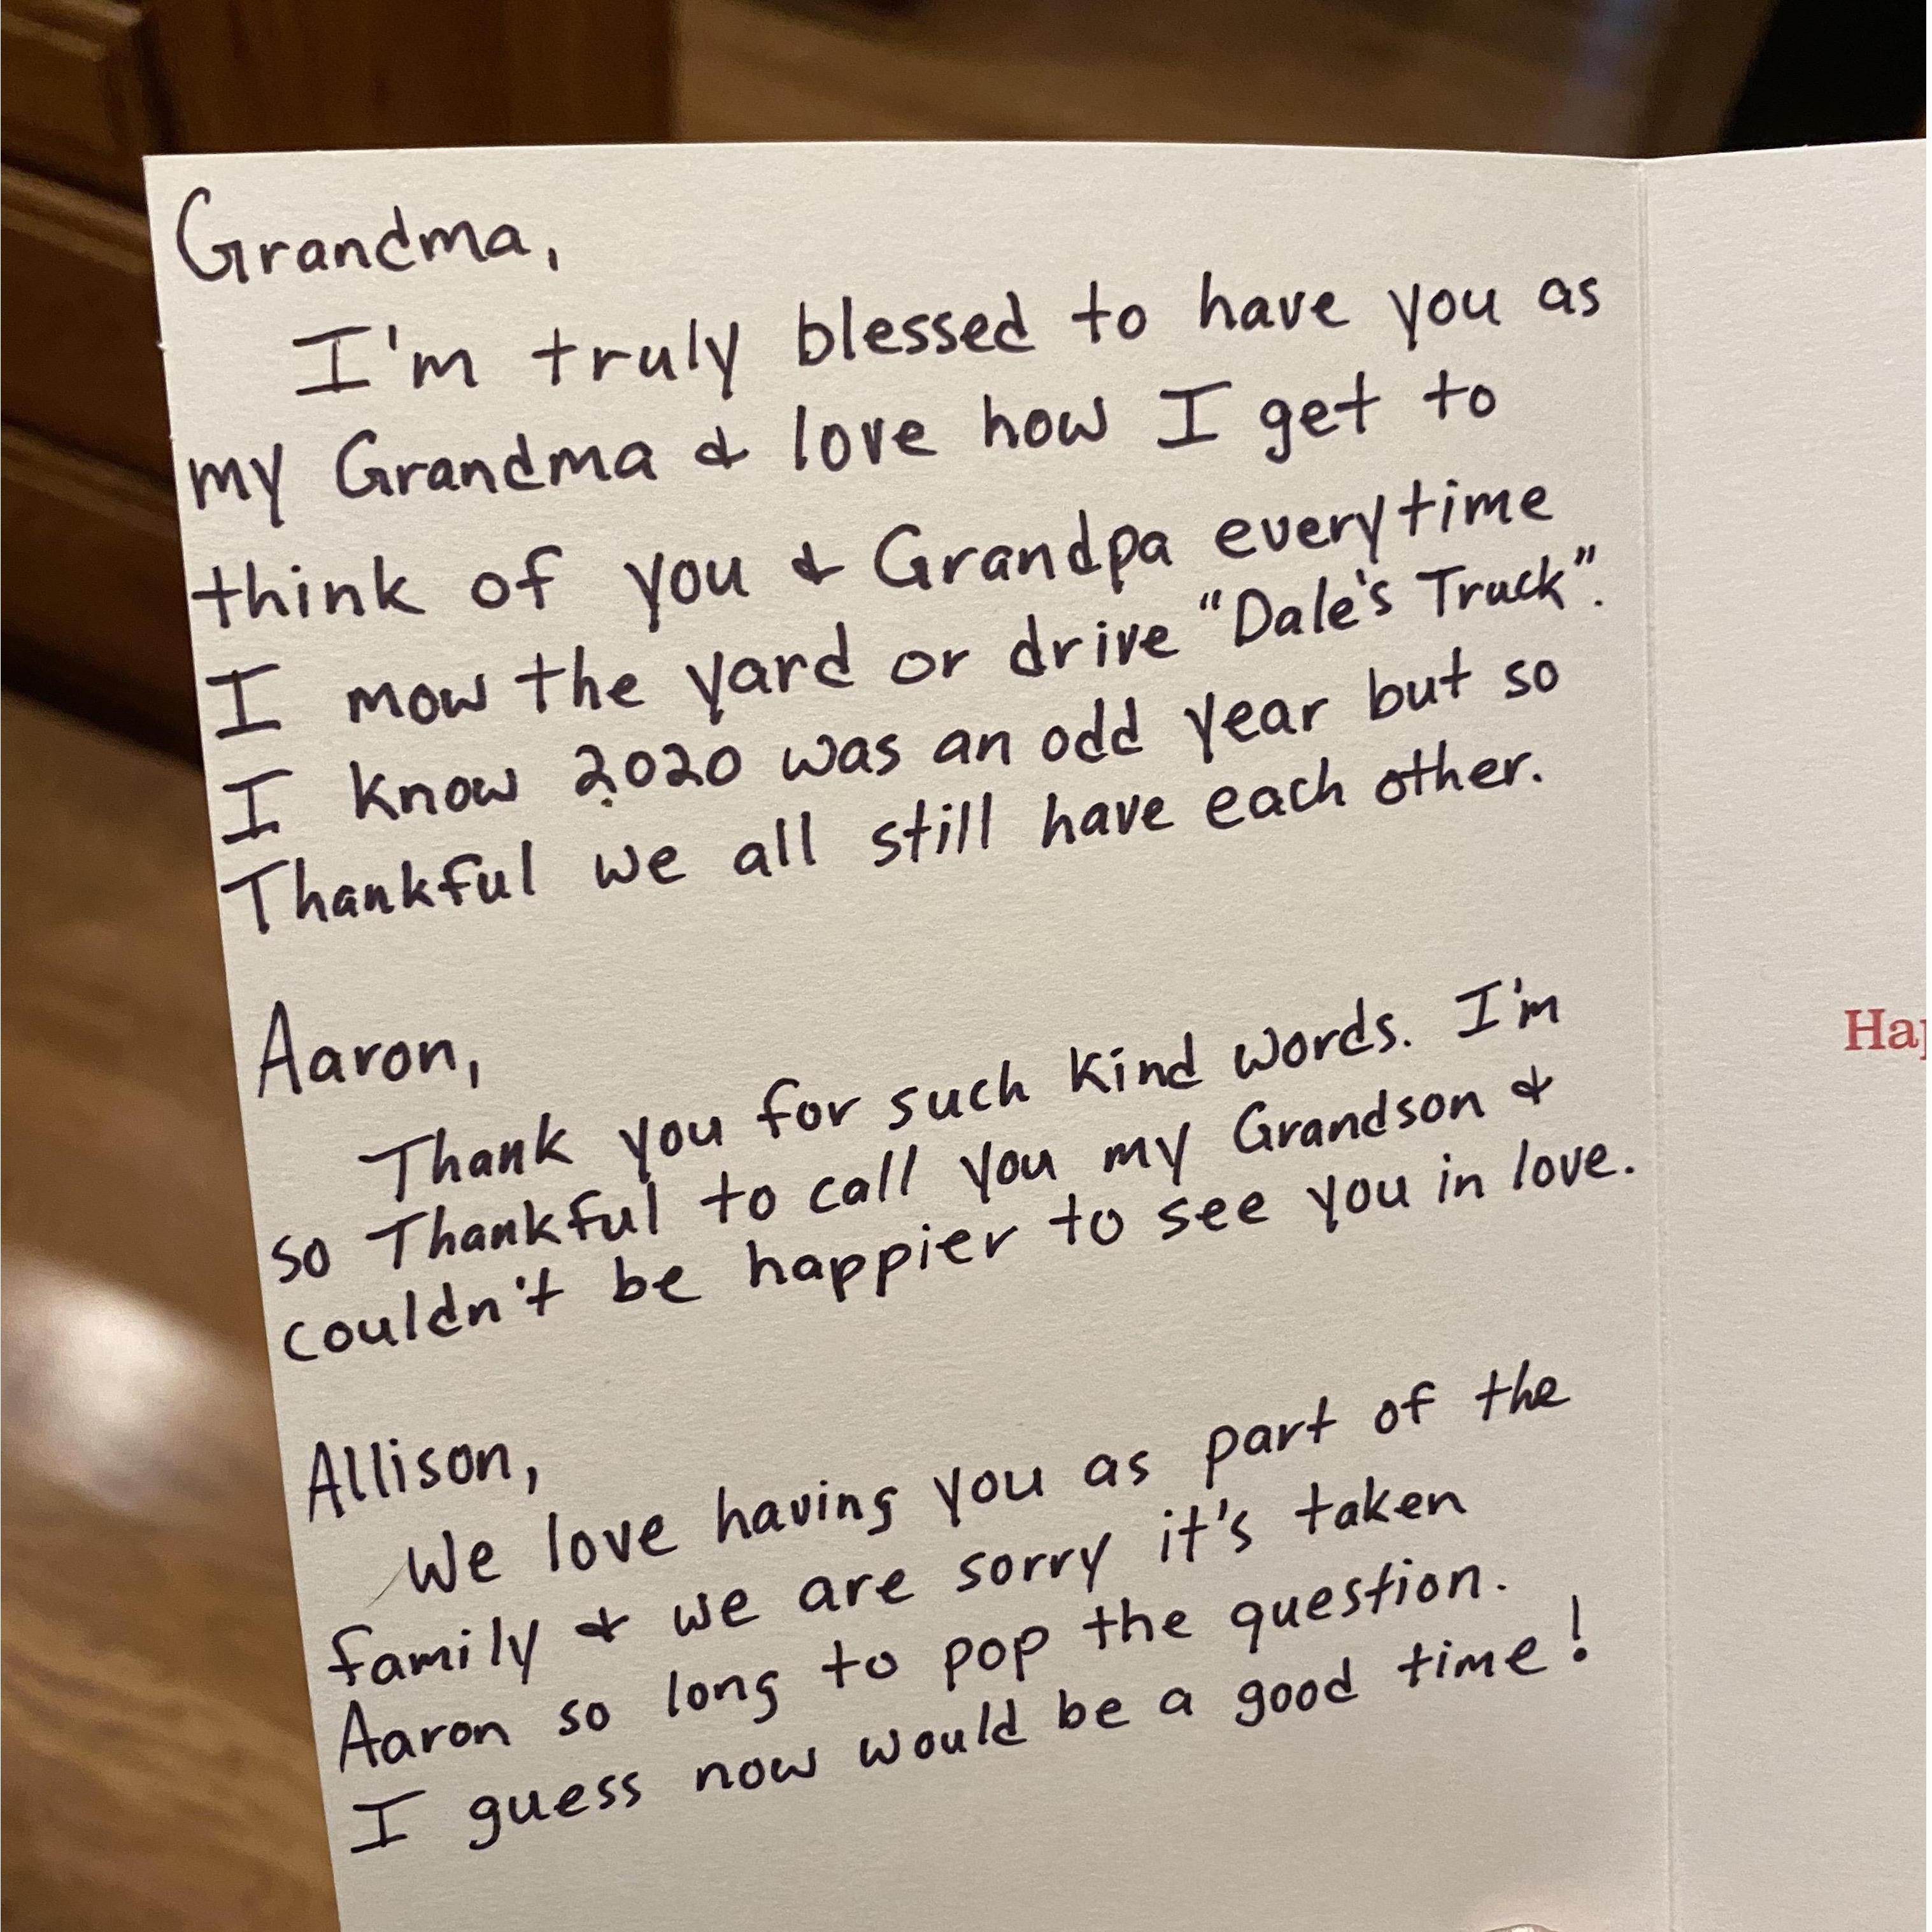 Grandma,
I'm truly blessed to have you as
my Grandma & love how I get to
think of you & Grandpa everytime
I mow the yard or drive "Dale's Truck".
I know 2020 was an odd year but so
Thankful we all still have each other.
Aaron,
Thank you for such kind words. I'm
so Thankful to call you my Grandson &
couldn't be happier to see you in love.
Allison,
We love having you as part of the
family & we are sorry it's taken
Aaron so long to pop the question.
I guess now would be a good time!